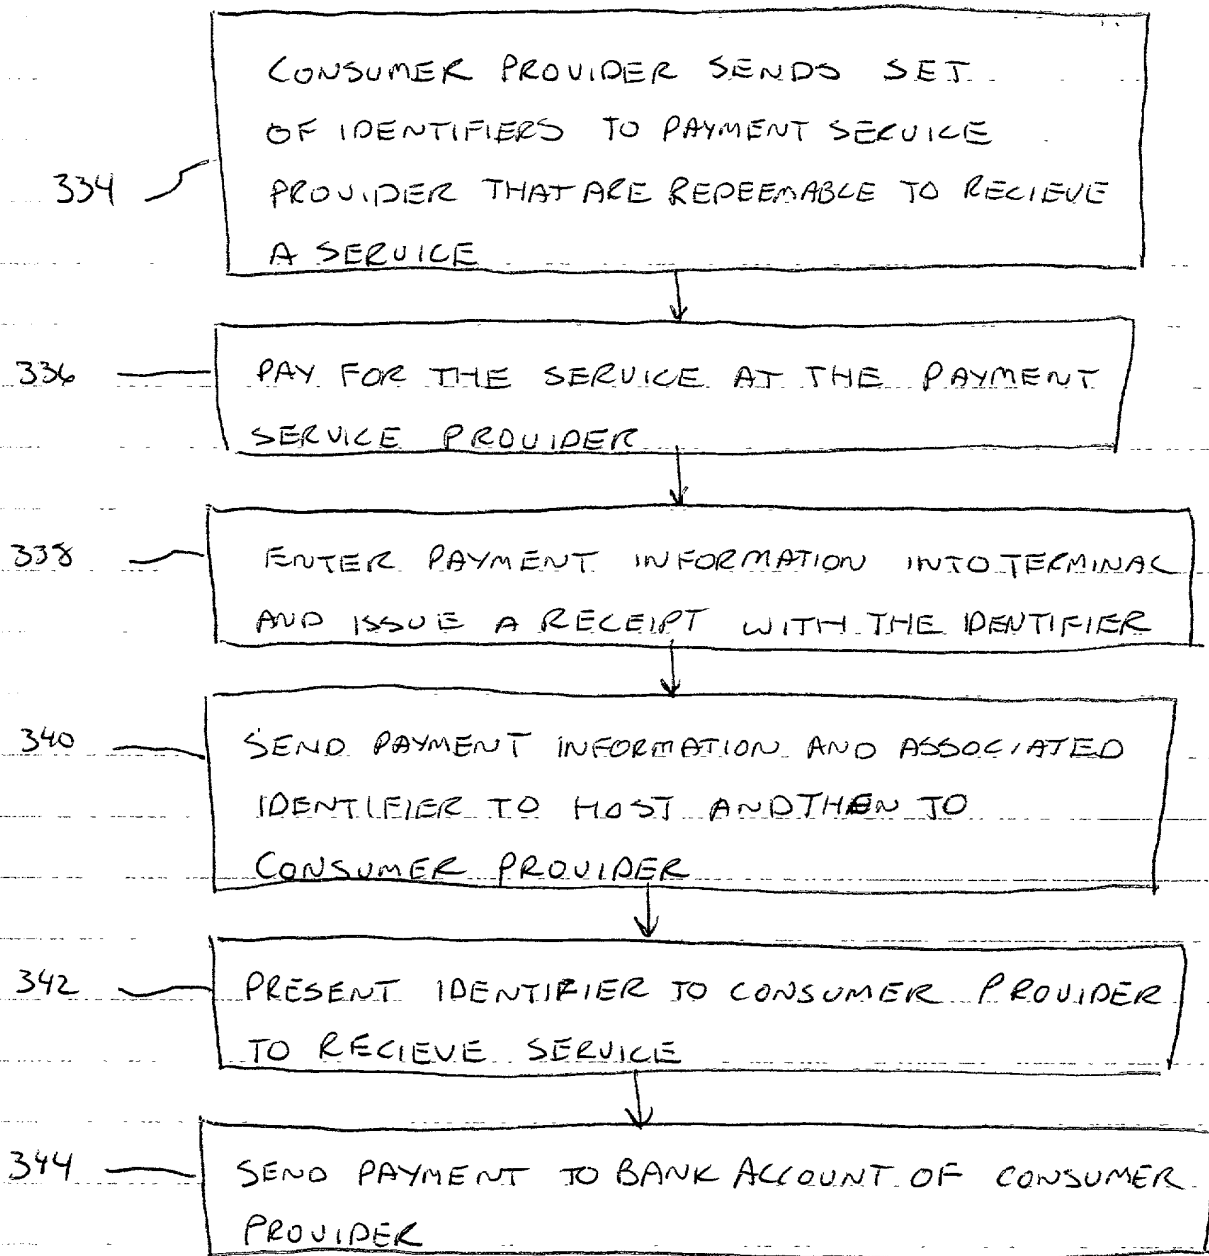 CONSUMER PROVIDER SENDS SET
OF IDENTIFIERS TO PAYMENT SERVICE
334
PROVIDER THAT ARE REDEEMABLE TO RECIEVE
A SERVICE
336
PAY FOR THE SERVICE AT THE PAYMENT
SERVICE PROVIDER
338
ENTER PAYMENT INFORMATION INTO TERMINAL
AND ISSUE A RECEIPT WITH THE IDENTIFIER
340
SEND PAYMENT INFORMATION AND ASSOCIATED
IDENTIFIER TO HOST AND THEN TO
CONSUMER PROVIDER
342
PRESENT IDENTIFIER TO CONSUMER PROVIDER
TO RECIEVE SERVICE
344
SEND PAYMENT TO BANK ACCOUNT OF CONSUMER
PROVIDER